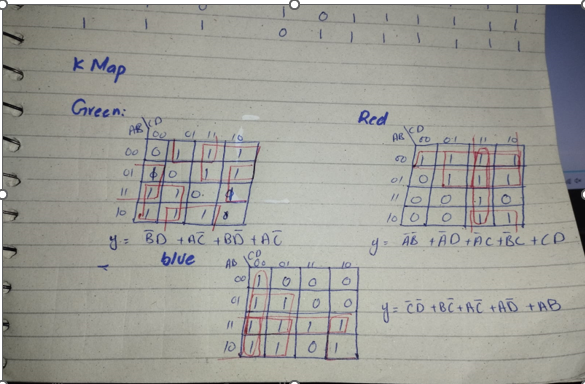 1 1 1 0 1 1 1 1 1
0 1 1 1 1 1 1
K Map
Green:
Red
AB\CD 00 01 11 10
00 0 1 1 1
01 0 1 1
11 1 1 0 
10 1 1 1
y = B̄D + AC̄ + BD̄ + AC̄
AB\CD 00 01 11 10
00 1 1 1 1
01 0 1 1 1
11 0 0 1 0
10 0 0 1 1
y = ĀB̄ + ĀD + ĀC + B̄C + CD
blue
AB\CD 00 01 11 10
00 1 0 0 0
01 1 1 0 0
11 1 1 1 1
10 1 1 0 1
y = C̄D̄ + BC̄ + AC̄ + AD̄ + AB